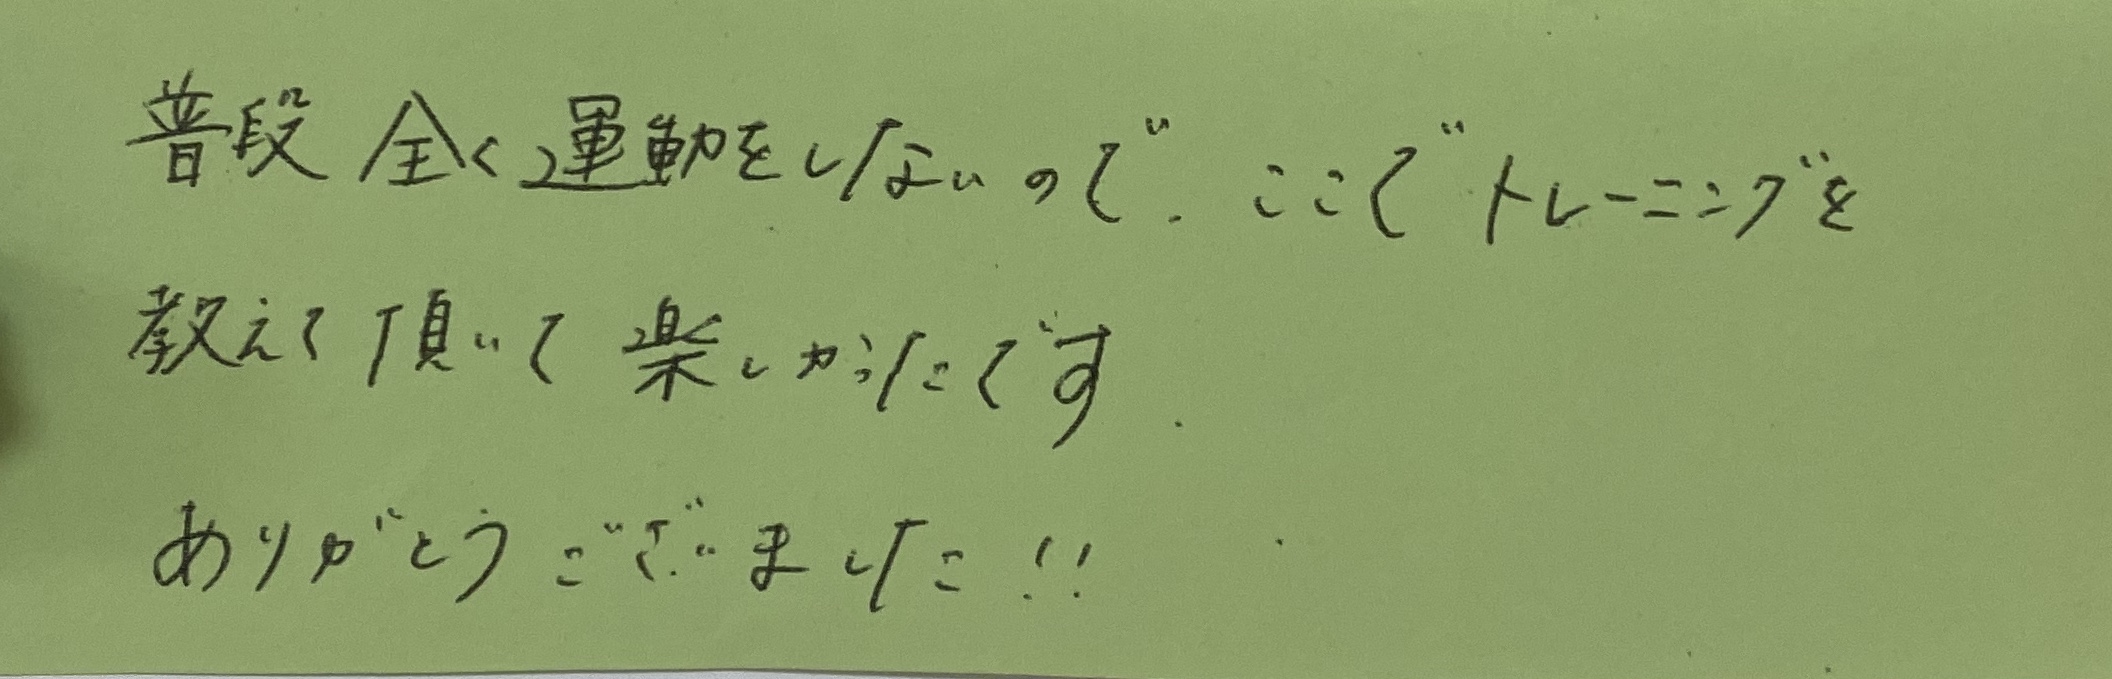 普段全く運動をしないので、ここでトレーニングを
教えて頂いて楽しかったです.
ありがとうございました!!